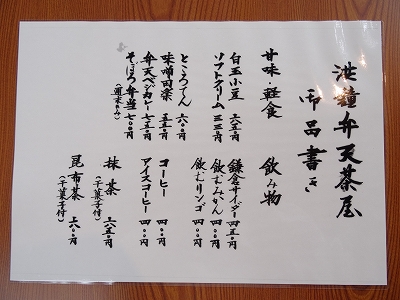 洪鐘弁天茶屋
御品書き
甘味・軽食
白玉小豆 六五〇円
ソフトクリーム 三三〇円
ところてん 六〇〇円
味噌田楽 五五〇円
弁天ベジカレー 七五〇円
そぼろ弁当 七〇〇円
(週末のみ)
飲み物
鎌倉サイダー 四五〇円
飲むみかん 四〇〇円
飲むリンゴ 四〇〇円
コーヒー 四〇〇円
アイスコーヒー 四〇〇円
抹茶 六五〇円
(干菓子付)
昆布茶 六〇〇円
(干菓子付)